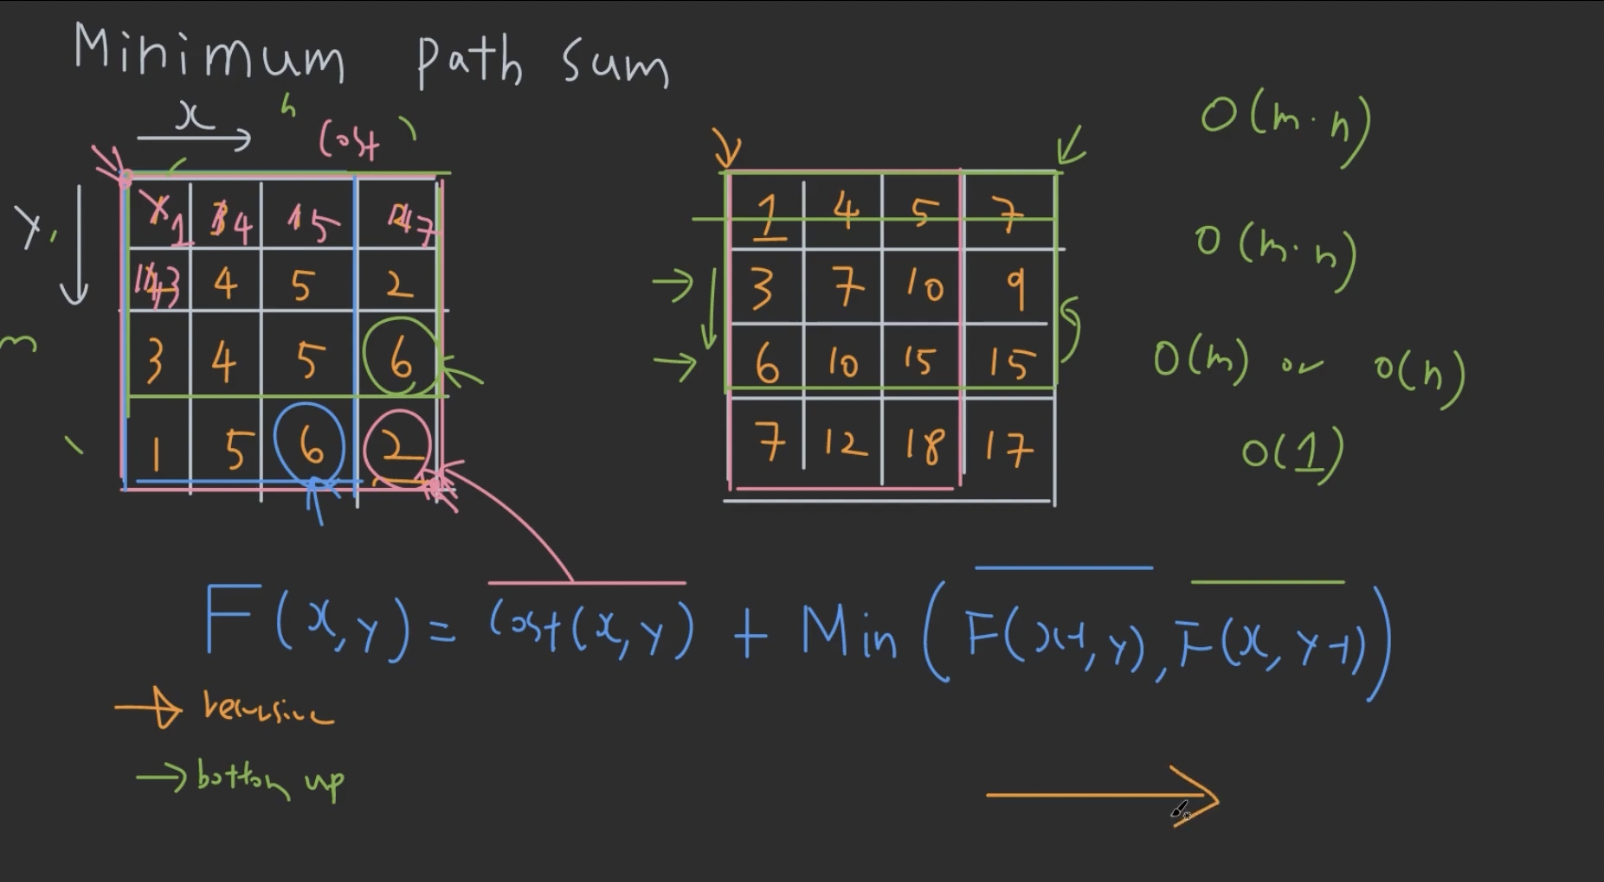 Minimum path sum
x
n
Cost
y
m
4 5 2
3 4 5 6
1 5 6 2
1 4 5 7
3 7 10 9
6 10 15 15
7 12 18 17
O(m·n)
O(m·n)
O(m) or O(n)
O(1)
F(x,y) = Cost(x,y) + Min(F(x-1,y), F(x,y-1))
recursive
bottom up